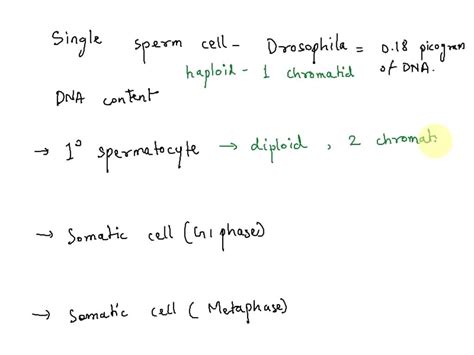 Single sperm cell - Drosophila = 0.18 picogram
haploid - 1 chromatid of DNA.
DNA content
→ 1° spermatocyte → diploid, 2 chromat
→ Somatic cell (G1 phase)
→ Somatic cell ( Metaphase)